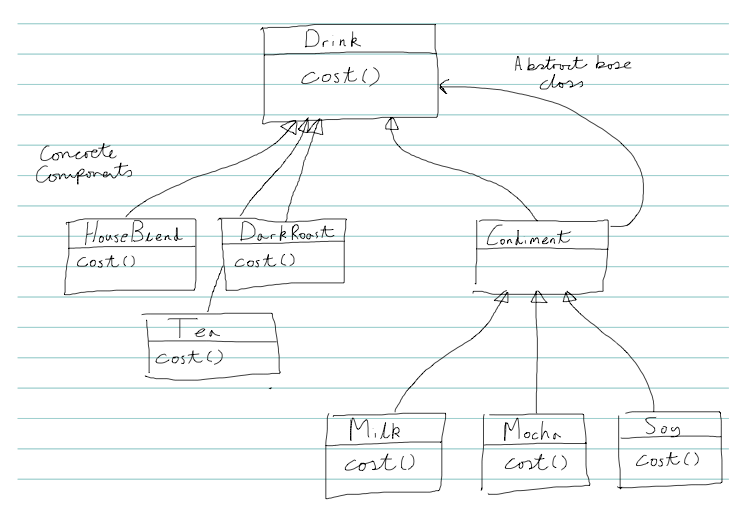 Drink
cost()
Abstract base
class
Concrete
Components
HouseBlend
cost()
DarkRoast
cost()
Condiment
Tea
cost()
Milk
cost()
Mocha
cost()
Soy
cost()